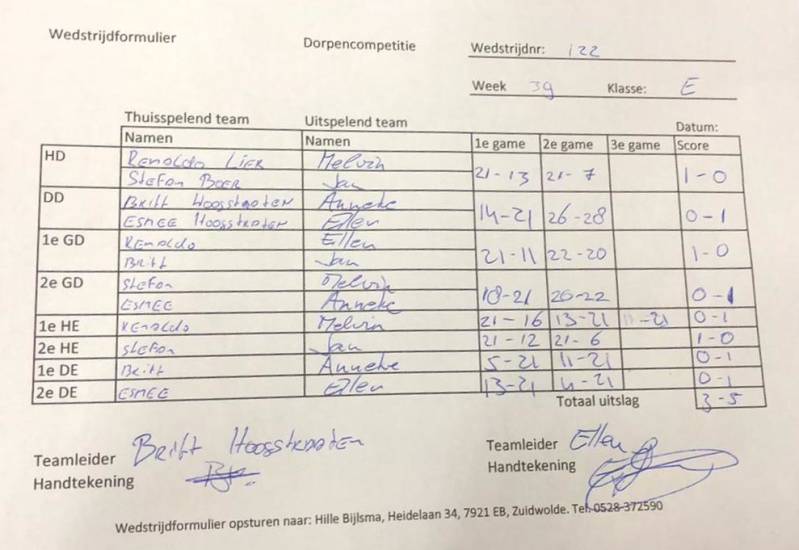 Wedstrijdformulier Dorpencompetitie Wedstrijdnr: 122
Week 39 Klasse: E
Thuisspelend team Uitspelend team Datum:
Namen Namen 1e game 2e game 3e game Score
HD Renoldo Lier Melvin
Stefan Boer Jan 21-13 21-7 1-0
DD Britt Hoogstraten Anneke
Esmee Hoogstraten Ellen 14-21 26-28 0-1
1e GD Renoldo Ellen
Britt Jan 21-11 22-20 1-0
2e GD Stefan Melvin
Esmee Anneke 18-21 20-22 0-1
1e HE Renoldo Melvin 21-16 13-21 11-21 0-1
2e HE Stefan Jan 21-12 21-6 1-0
1e DE Britt Anneke 5-21 11-21 0-1
2e DE Esmee Ellen 13-21 -21 0-1
Totaal uitslag 3-5
Teamleider Britt Hoogstraten Teamleider Ellen
Handtekening Handtekening
Wedstrijdformulier opsturen naar: Hille Bijlsma, Heidelaan 34, 7921 EB, Zuidwolde. Tel. 0528-372590